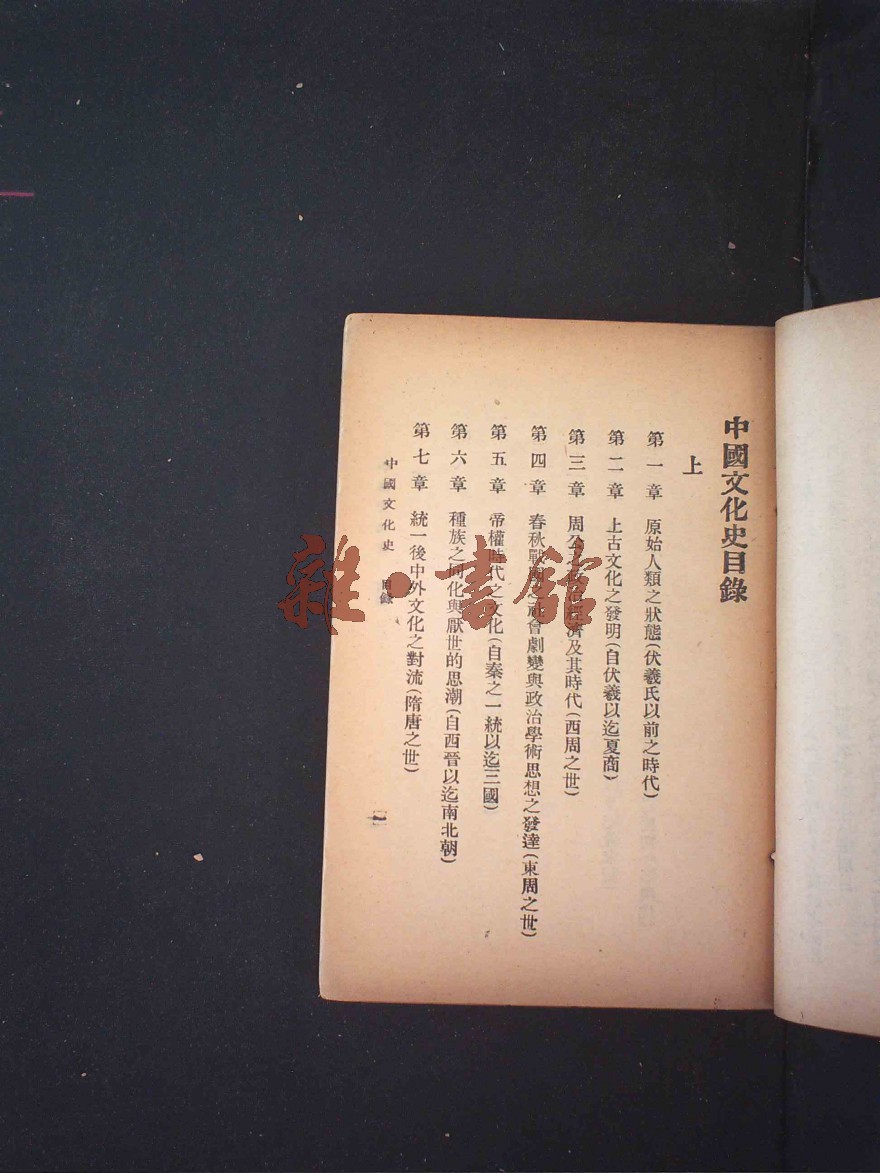 中國文化史目錄
上
第一章 原始人類之狀態(伏羲氏以前之時代)
第二章 上古文化之發明(自伏羲以迄夏商)
第三章 周公之政治經濟及其時代(西周之世)
第四章 春秋戰國之社會劇變與政治學術思想之發達(東周之世)
第五章 帝權時代之文化(自秦之一統以迄三國)
第六章 種族之同化與厭世的思潮(自西晉以迄南北朝)
第七章 統一後中外文化之對流(隋唐之世)
中國文化史 目錄
一
雜·書館